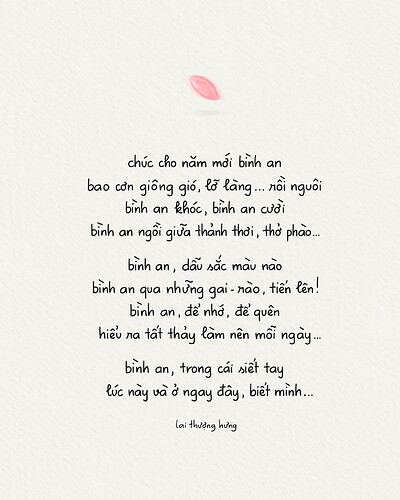 chúc cho năm mới bình an
bao cơn giông gió, lỡ làng... rồi nguôi
bình an khóc, bình an cười
bình an ngồi giữa thảnh thơi, thở phào...
bình an, dẫu sắc màu nào
bình an qua những gai - rào, tiến lên!
bình an, để nhớ, để quên
hiểu ra tất thảy làm nên mỗi ngày...
bình an, trong cái siết tay
lúc này và ở ngay đây, biết mình...
lai thương hưng